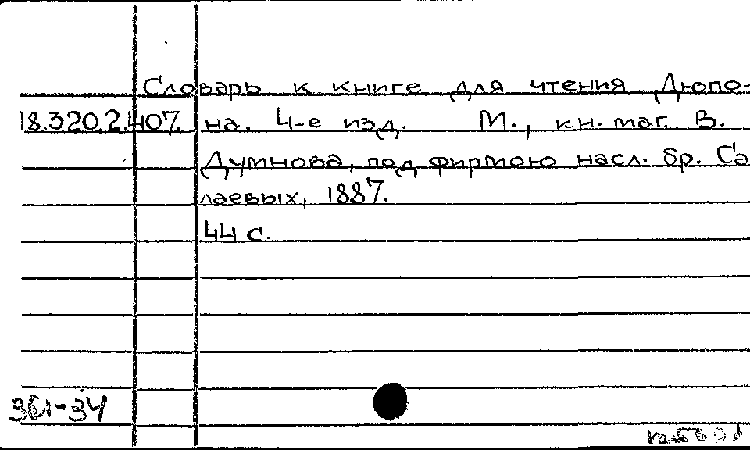 Словарь к книге для чтения Дюпо-
18.320.2.407. на. 4-е изд. М., кн. маг. В.
Думнова, под фирмою насл. бр. Са
лаевых, 1887.
44 с.
361-34